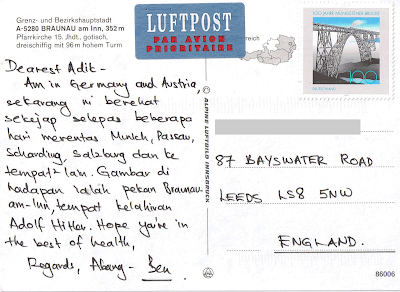 Grenz- und Bezirkshauptstadt
A-5280 BRAUNAU am Inn, 352 m
Pfarrkirche 15. Jhdt., gotisch,
dreischiffig mit 96 m hohem Turm
LUFTPOST
PAR AVION
PRIORITAIRE
Dearest Adik -
Am in Germany and Austria,
sekarang ni berehat
sekejap selepas beberapa
hari merentas Munich, Passau,
Scharding, Salzburg dan ke
tempat² lain. Gambar di
hadapan ialah pekan Braunau-
am-Inn, tempat kelahiran
Adolf Hitler. Hope you're in
the best of health,
Regards, Abang - Ben
© ALPINE LUFTBILD INNSBRUCK
100 JAHRE MÜNGSTENER BRÜCKE
100
DEUTSCHLAND
87 BAYSWATER ROAD
LEEDS LS8 5NW
ENGLAND.
86006